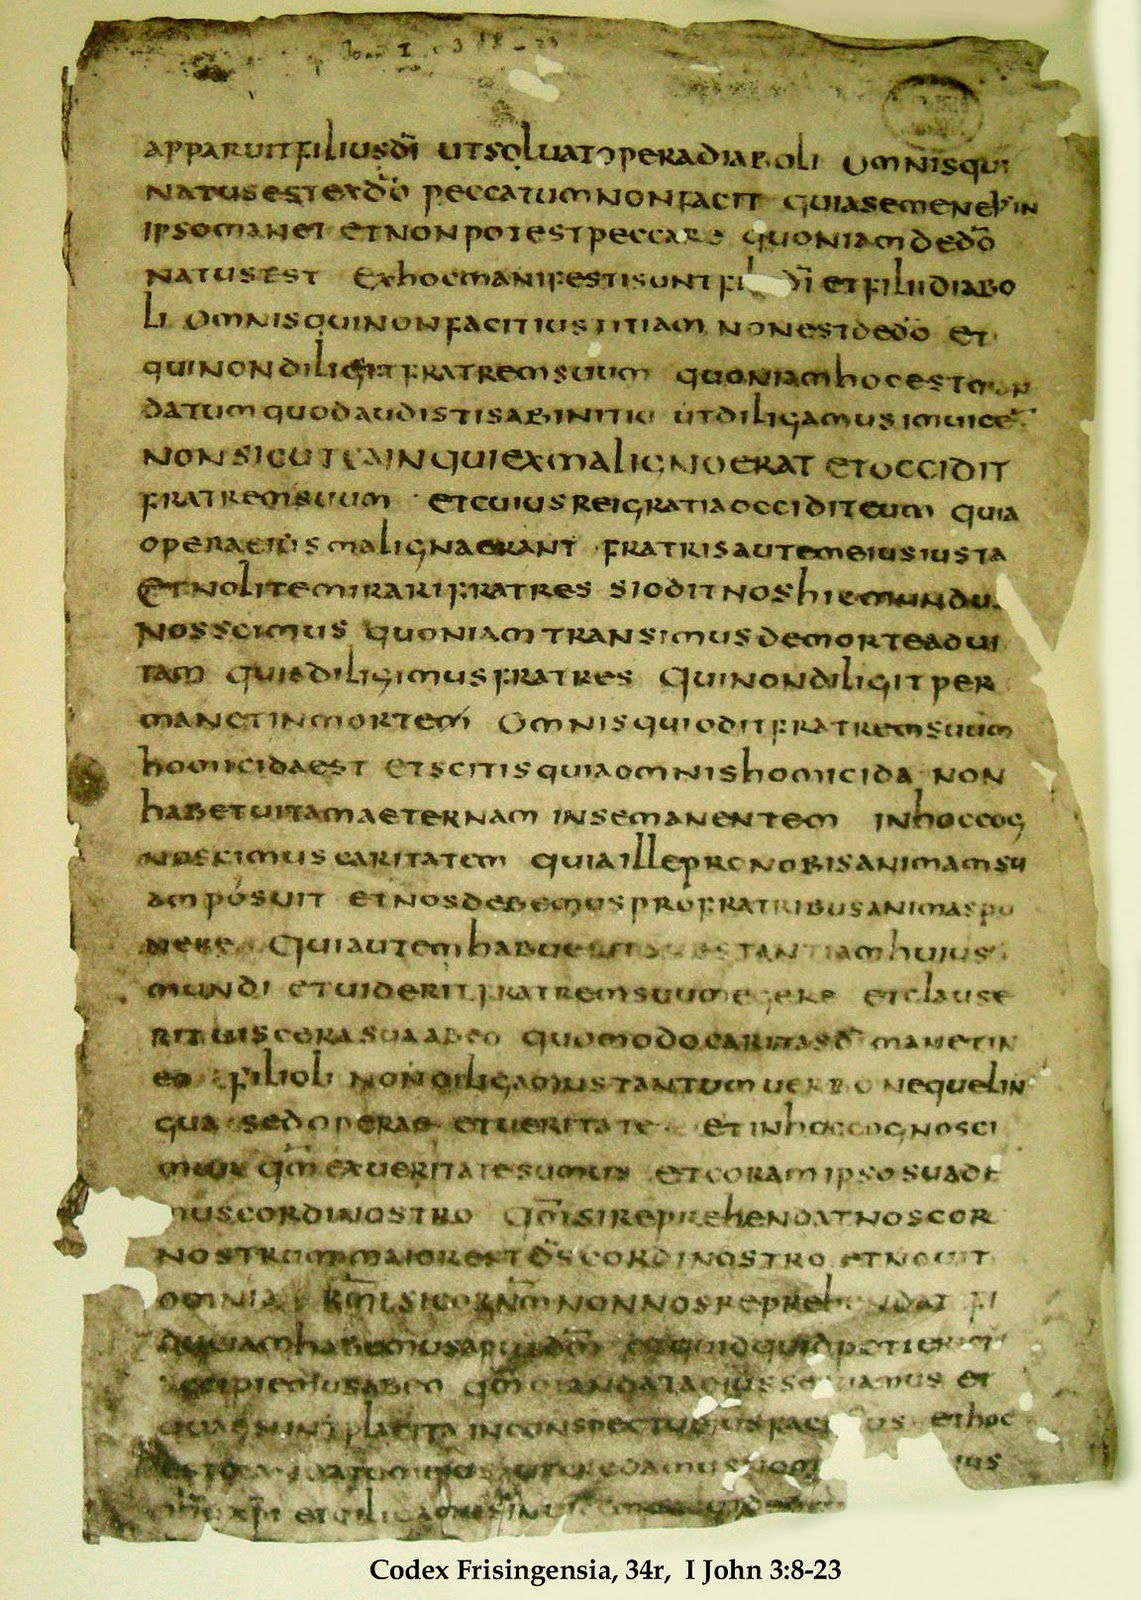 APPARUIT FILIUS DĪ UT SOLUAT OPERA DIABOLI OMNIS QUI
NATUS EST EX DŌ PECCATUM NON FACIT QUIA SEMEN EIUS IN
IPSO MANET ET NON POTEST PECCARE QUONIAM DE DŌ
NATUS EST EX HOC MANIFESTI SUNT DĪ ET FILII DIABO
LI OMNIS QUI NON FACIT IUSTITIAM NON EST DE DŌ ET
QUI NON DILIGIT FRATREM SUUM QUONIAM HOC EST
DATUM QUOD AUDISTIS AB INITIO UT DILIGAMUS INUICĒ
NON SICUT CAIN QUI EX MALIGNO ERAT ET OCCIDIT
FRATREM SUUM ET CUIUS REI GRATIA OCCIDIT EUM QUIA
OPERA EIUS MALIGNA ERANT FRATRIS AUTEM EIUS IUSTA
ET NOLITE MIRARI FRATRES SI ODIT NOS HIC MUNDUS
NOS SCIMUS QUONIAM TRANSIMUS DE MORTE AD UI
TAM QUIA DILIGIMUS FRATRES QUI NON DILIGIT PER
MANET IN MORTEM OMNIS QUI ODIT FRATREM SUUM
HOMICIDA EST ET SCITIS QUIA OMNIS HOMICIDA NON
HABET UITAM AETERNAM IN SE MANENTEM IN HOC COG
NOSCIMUS CARITATEM QUIA ILLE PRO NOBIS ANIMAM SU
AM POSUIT ET NOS DEBEMUS PRO FRATRIBUS ANIMAS PO
NERE QUI AUTEM HABUERIT HUIUS
MUNDI ET UIDERIT FRATREM SUUM EGERE ET CLAUSE
RIT UISCERA SUA AB EO QUOMODO CARITAS DĪ MANET IN
EO FILIOLI NON DILIGAMUS TANTUM UERBO NEQUE LIN
GUA SED OPERAE ET UERITATE ET IN HOC COGNOSCI
MUR QM̄ EX UERITATE SUMUS ET CORAM IPSO SUADE
MUS CORDI NOSTRO QM̄ SI REPREHENDAT NOS COR
NOSTRUM MAIOR EST D̄S CORDI NOSTRO ET NOUIT
OMNIA NON NOS REPREHENDAT FI
DUCIAM HABEMUS APUD DM̄ ET QUIDQUID PETIERIMUS
ACCIPIEMUS AB EO QM̄ MANDATA EIUS SERUAMUS ET
QUAE SUNT PLACITA IN CONSPECTU EIUS ET HOC
UT CREDAMUS
XP̄I ET DILIGAMUS
Codex Frisingensia, 34r, I John 3:8-23